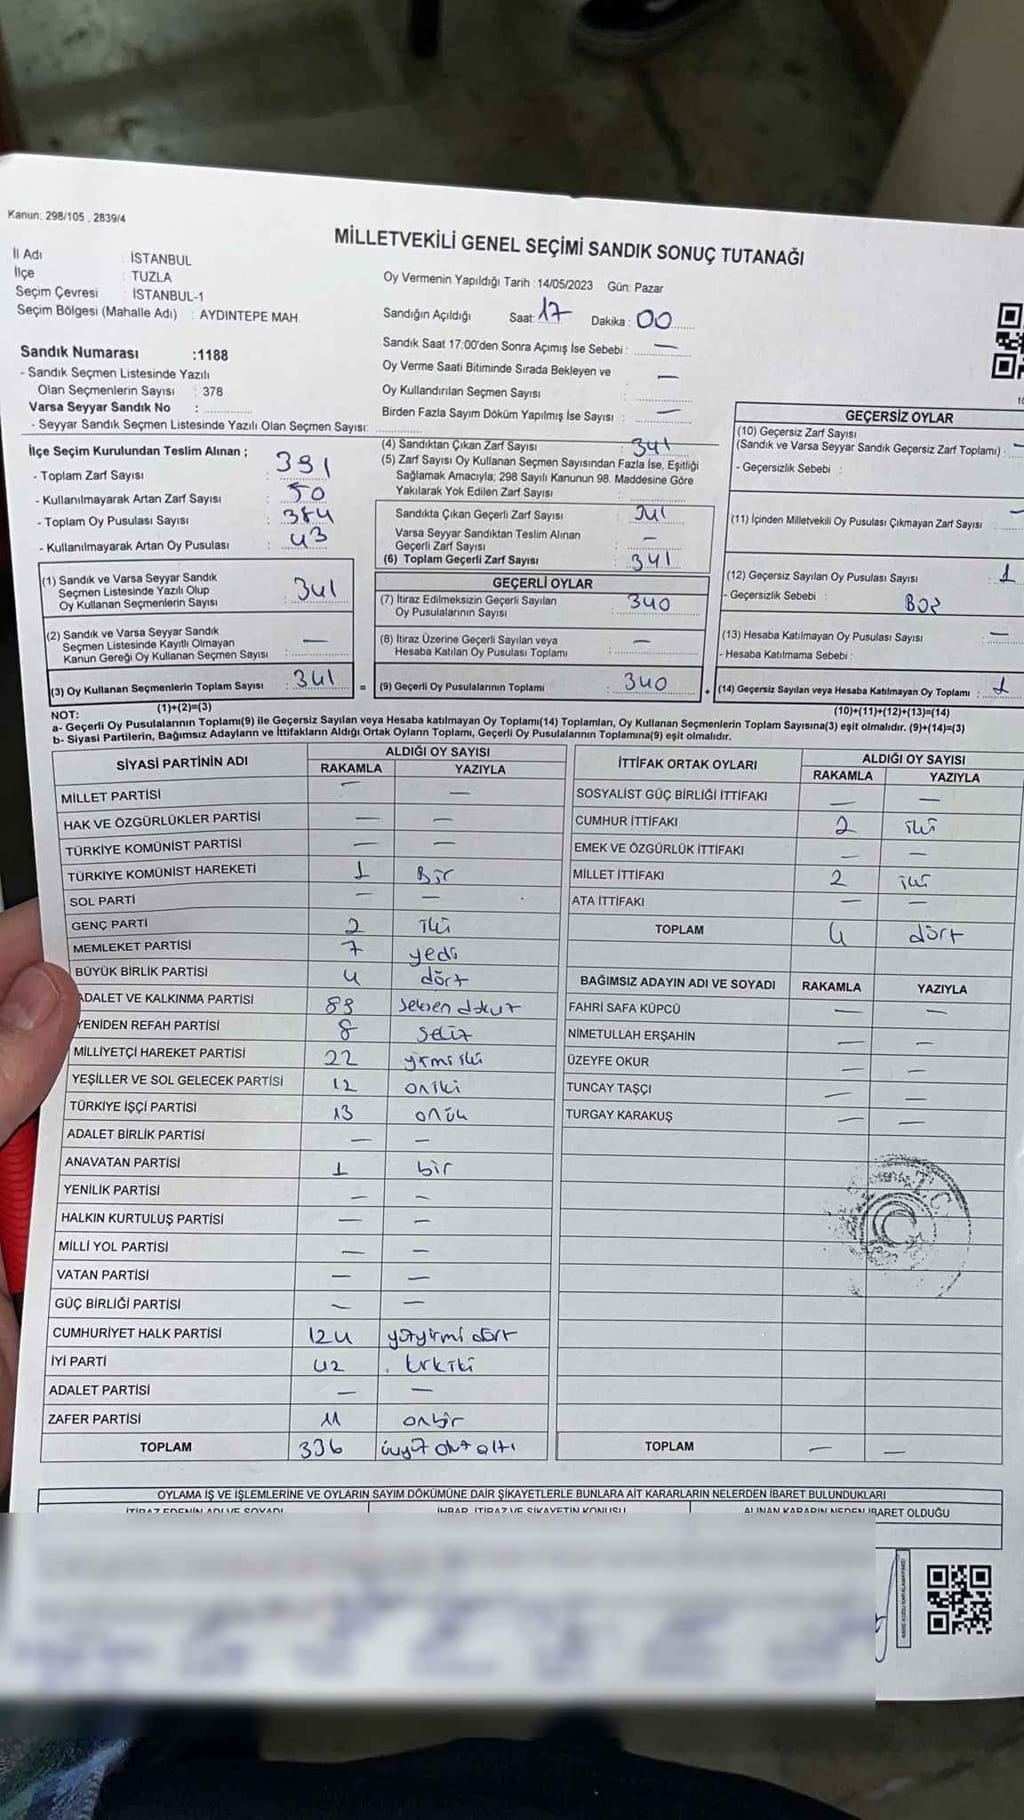 Kanun: 298/105 , 2839/4
MİLLETVEKİLİ GENEL SEÇİMİ SANDIK SONUÇ TUTANAĞI
İl Adı : İSTANBUL
İlçe : TUZLA
Seçim Çevresi : İSTANBUL-1
Seçim Bölgesi (Mahalle Adı) : AYDINTEPE MAH.
Oy Vermenin Yapıldığı Tarih :14/05/2023 Gün: Pazar
Sandığın Açıldığı Saat: 17 Dakika : 00
Sandık Saat 17:00'den Sonra Açımış İse Sebebi : —
Oy Verme Saati Bitiminde Sırada Bekleyen ve
Oy Kullandırılan Seçmen Sayısı : —
Birden Fazla Sayım Döküm Yapılmış İse Sayısı : —
Sandık Numarası :1188
- Sandık Seçmen Listesinde Yazılı
Olan Seçmenlerin Sayısı : 378
Varsa Seyyar Sandık No :
- Seyyar Sandık Seçmen Listesinde Yazılı Olan Seçmen Sayısı:
İlçe Seçim Kurulundan Teslim Alınan ;
- Toplam Zarf Sayısı : 391
- Kullanılmayarak Artan Zarf Sayısı : 50
- Toplam Oy Pusulası Sayısı : 384
- Kullanılmayarak Artan Oy Pusulası : 43
(1) Sandık ve Varsa Seyyar Sandık
Seçmen Listesinde Yazılı Olup
Oy Kullanan Seçmenlerin Sayısı : 341
(2) Sandık ve Varsa Seyyar Sandık
Seçmen Listesinde Kayıtlı Olmayan
Kanun Gereği Oy Kullanan Seçmen Sayısı : —
(3) Oy Kullanan Seçmenlerin Toplam Sayısı : 341
(1)+(2)=(3)
(4) Sandıktan Çıkan Zarf Sayısı : 341
(5) Zarf Sayısı Oy Kullanan Seçmen Sayısından Fazla İse, Eşitliği
Sağlamak Amacıyla; 298 Sayılı Kanunun 98. Maddesine Göre
Yakılarak Yok Edilen Zarf Sayısı :
Sandıkta Çıkan Geçerli Zarf Sayısı : 341
Varsa Seyyar Sandıktan Teslim Alınan
Geçerli Zarf Sayısı : —
(6) Toplam Geçerli Zarf Sayısı : 341
GEÇERLİ OYLAR
(7) İtiraz Edilmeksizin Geçerli Sayılan
Oy Pusulalarının Sayısı : 340
(8) İtiraz Üzerine Geçerli Sayılan veya
Hesaba Katılan Oy Pusulası Toplamı : —
= (9) Geçerli Oy Pusulalarının Toplamı : 340
GEÇERSİZ OYLAR
(10) Geçersiz Zarf Sayısı
(Sandık ve Varsa Seyyar Sandık Geçersiz Zarf Toplamı) : —
- Geçersizlik Sebebi :
(11) İçinden Milletvekili Oy Pusulası Çıkmayan Zarf Sayısı : —
(12) Geçersiz Sayılan Oy Pusulası Sayısı : 1
- Geçersizlik Sebebi : BOŞ
(13) Hesaba Katılmayan Oy Pusulası Sayısı : —
- Hesaba Katılmama Sebebi :
+ (14) Geçersiz Sayılan veya Hesaba Katılmayan Oy Toplamı : 1
(10)+(11)+(12)+(13)=(14)
NOT:
a- Geçerli Oy Pusulalarının Toplamı(9) ile Geçersiz Sayılan veya Hesaba katılmayan Oy Toplamı(14) Toplamları, Oy Kullanan Seçmenlerin Toplam Sayısına(3) eşit olmalıdır. (9)+(14)=(3)
b- Siyasi Partilerin, Bağımsız Adayların ve İttifakların Aldığı Ortak Oyların Toplamı, Geçerli Oy Pusulalarının Toplamına(9) eşit olmalıdır.
SİYASİ PARTİNİN ADI ALDIĞI OY SAYISI
RAKAMLA YAZIYLA
MİLLET PARTİSİ — —
HAK VE ÖZGÜRLÜKLER PARTİSİ — —
TÜRKİYE KOMÜNİST PARTİSİ — —
TÜRKİYE KOMÜNİST HAREKETİ 1 Bir
SOL PARTİ — —
GENÇ PARTİ 2 iki
MEMLEKET PARTİSİ 7 yedi
BÜYÜK BİRLİK PARTİSİ 4 dört
ADALET VE KALKINMA PARTİSİ 89 seksen dokuz
YENİDEN REFAH PARTİSİ 8 sekiz
MİLLİYETÇİ HAREKET PARTİSİ 22 yirmi iki
YEŞİLLER VE SOL GELECEK PARTİSİ 12 oniki
TÜRKİYE İŞÇİ PARTİSİ 13 onüç
ADALET BİRLİK PARTİSİ — —
ANAVATAN PARTİSİ 1 bir
YENİLİK PARTİSİ — —
HALKIN KURTULUŞ PARTİSİ — —
MİLLİ YOL PARTİSİ — —
VATAN PARTİSİ — —
GÜÇ BİRLİĞİ PARTİSİ — —
CUMHURİYET HALK PARTİSİ 124 yüzyirmi dört
İYİ PARTİ 42 kırkiki
ADALET PARTİSİ — —
ZAFER PARTİSİ 11 onbir
TOPLAM 336 üçyüz otuz altı
İTTİFAK ORTAK OYLARI ALDIĞI OY SAYISI
RAKAMLA YAZIYLA
SOSYALİST GÜÇ BİRLİĞİ İTTİFAKI — —
CUMHUR İTTİFAKI 2 iki
EMEK VE ÖZGÜRLÜK İTTİFAKI — —
MİLLET İTTİFAKI 2 iki
ATA İTTİFAKI — —
TOPLAM 4 dört
BAĞIMSIZ ADAYIN ADI VE SOYADI RAKAMLA YAZIYLA
FAHRİ SAFA KÜPCÜ — —
NİMETULLAH ERŞAHİN — —
ÜZEYFE OKUR — —
TUNCAY TAŞÇI — —
TURGAY KARAKUŞ — —
T.C.
TOPLAM — —
OYLAMA İŞ VE İŞLEMLERİNE VE OYLARIN SAYIM DÖKÜMÜNE DAİR ŞİKAYETLERLE BUNLARA AİT KARARLARIN NELERDEN İBARET BULUNDUKLARI
İTİRAZ EDENİN ADI VE SOYADI İHBAR, İTİRAZ VE ŞİKAYETİN KONUSU ALINAN KARARIN NEDEN İBARET OLDUĞU